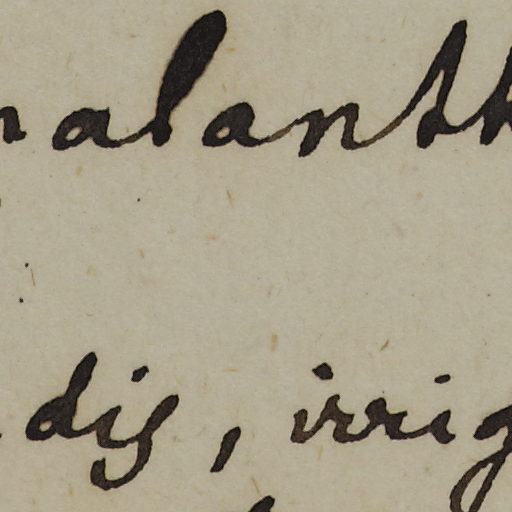 alanth
dis, irrig